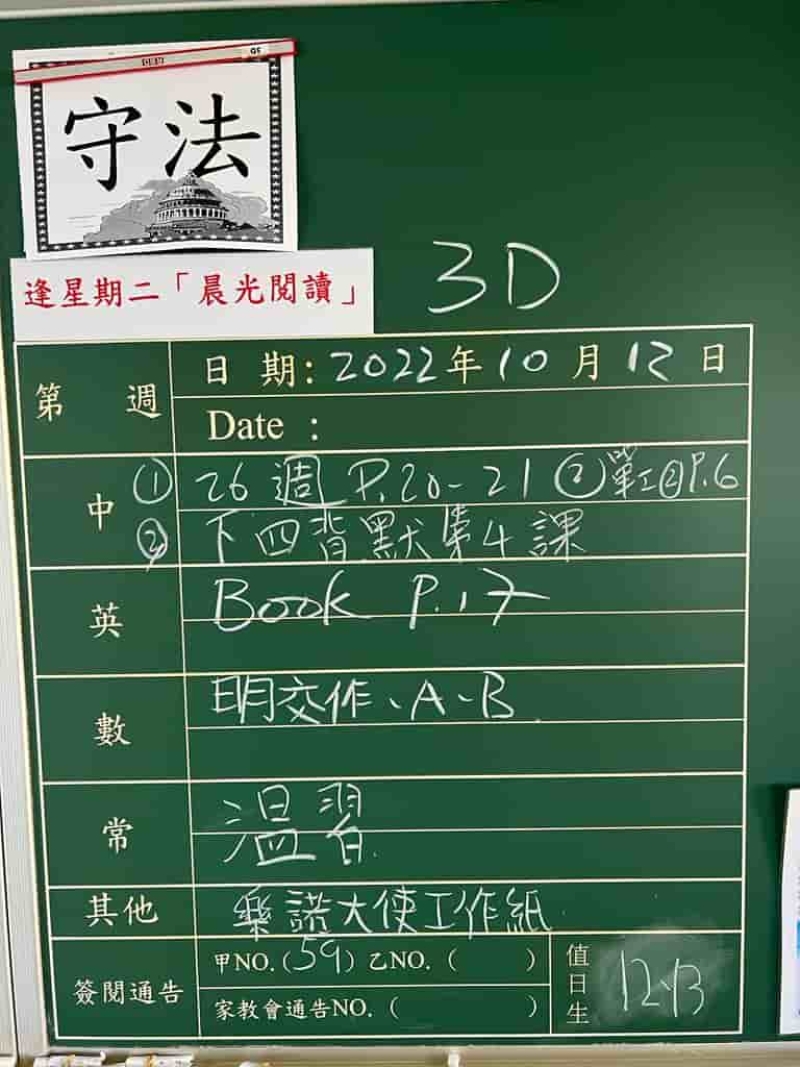 守法
逢星期二「晨光閱讀」
3D
第 週
日 期: 2022年10月12日
Date :
中 ① 26週 P.20-21 ② 單工② P.6
② 下四背默第4課
英 Book P.17
數 明交作、A、B
常 溫習
其他 樂諾大使工作紙
簽閱通告 甲NO.(59) 乙NO. ( )
家教會通告NO. ( )
值日生 12、13